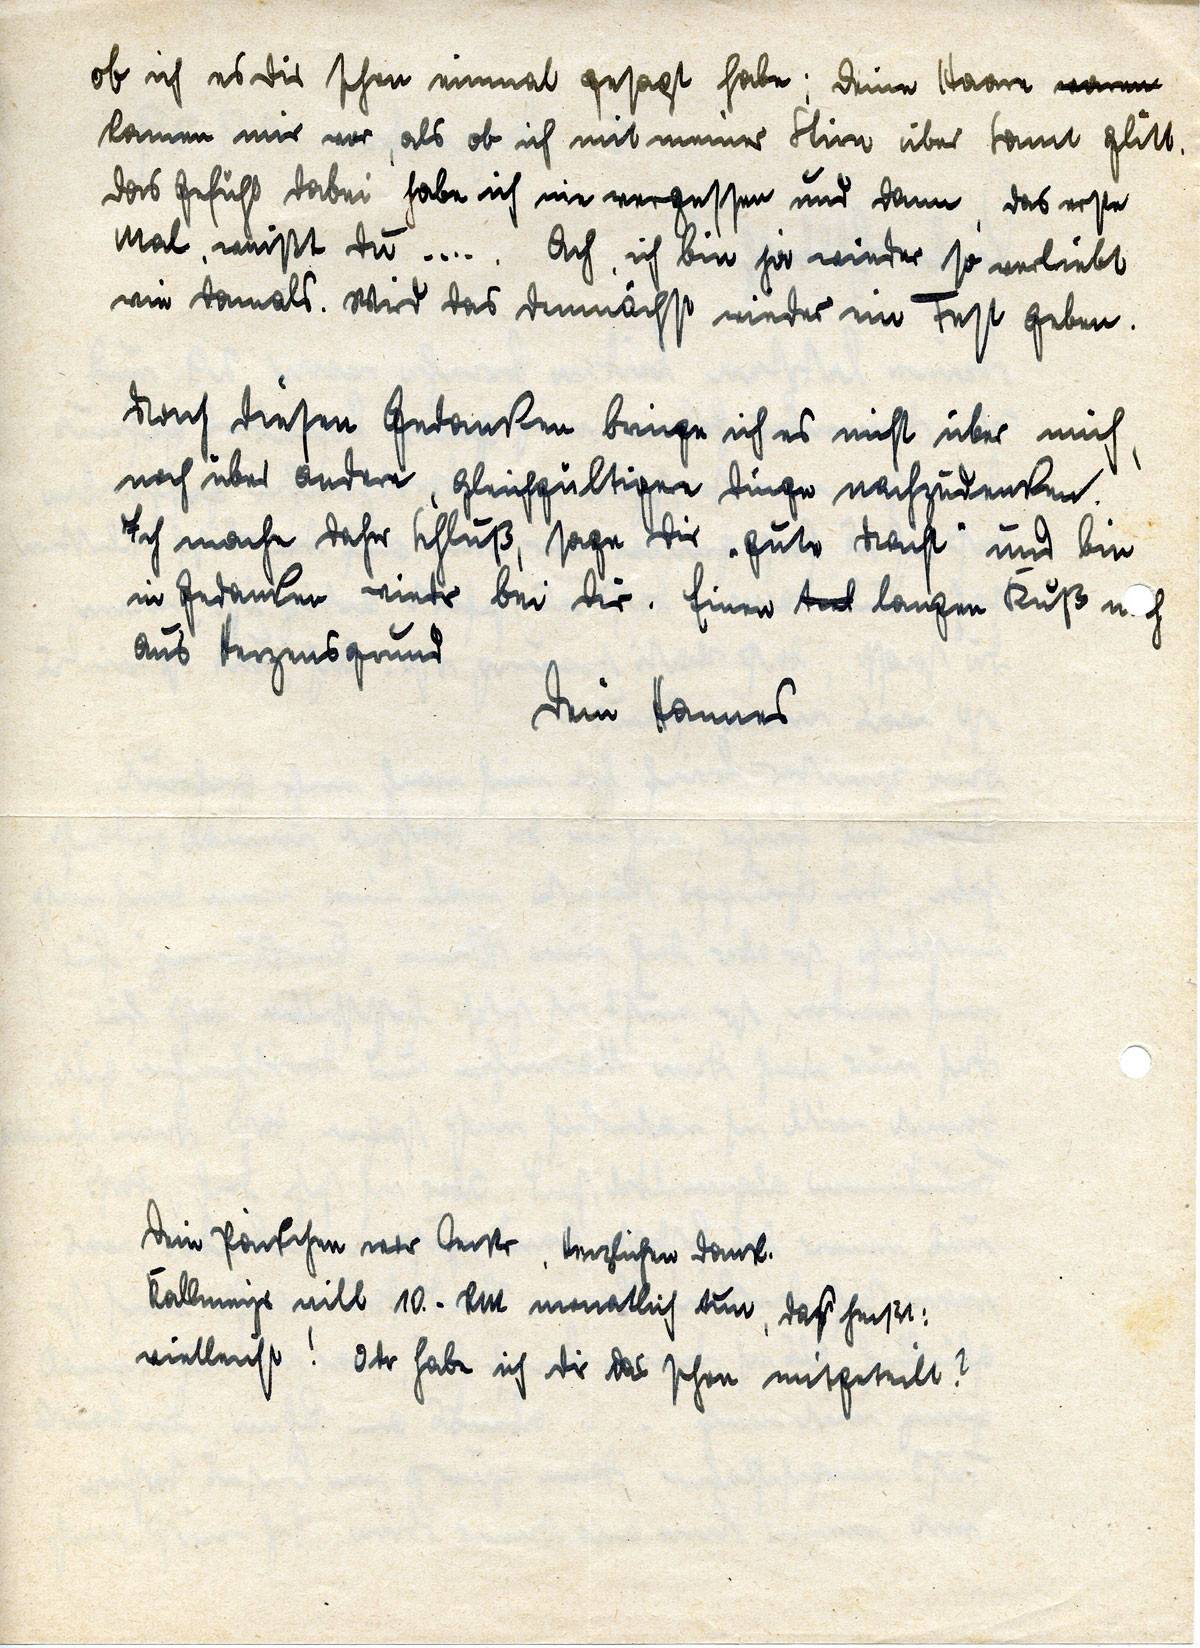 ob ich es dir schon einmal gesagt habe; deine Haare waren
kamen mir vor, als ob ich mit meiner Stirn über Samt glitt.
Das Gefühl dabei habe ich nie vergessen und dann, das erste
Mal, weißt du ..... Ach, ich bin ja wieder so verliebt
wie damals. Wird das demnächst wieder ein Fest geben.
Nach diesen Gedanken bringe ich es nicht über mich,
noch über andere, gleichgültigere Dinge nachzudenken.
Ich mache daher Schluß, sage dir „gute Nacht" und bin
in Gedanken wieder bei dir. Einen langen Kuß noch
aus Herzensgrund
Dein Hannes
Dein Päckchen war lecker, herzlichen Dank.
will 10.- RM monatlich tun, das heißt:
vielleicht! Oder habe ich dir das schon mitgeteilt?